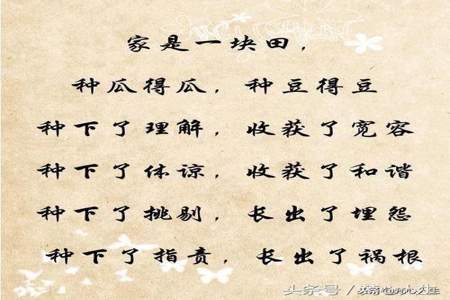 家是一块田，
种瓜得瓜，种豆得豆
种下了理解，收获了宽容
种下了体谅，收获了和谐
种下了挑剔，长出了埋怨
种下了指责，长出了祸根
头条号 /